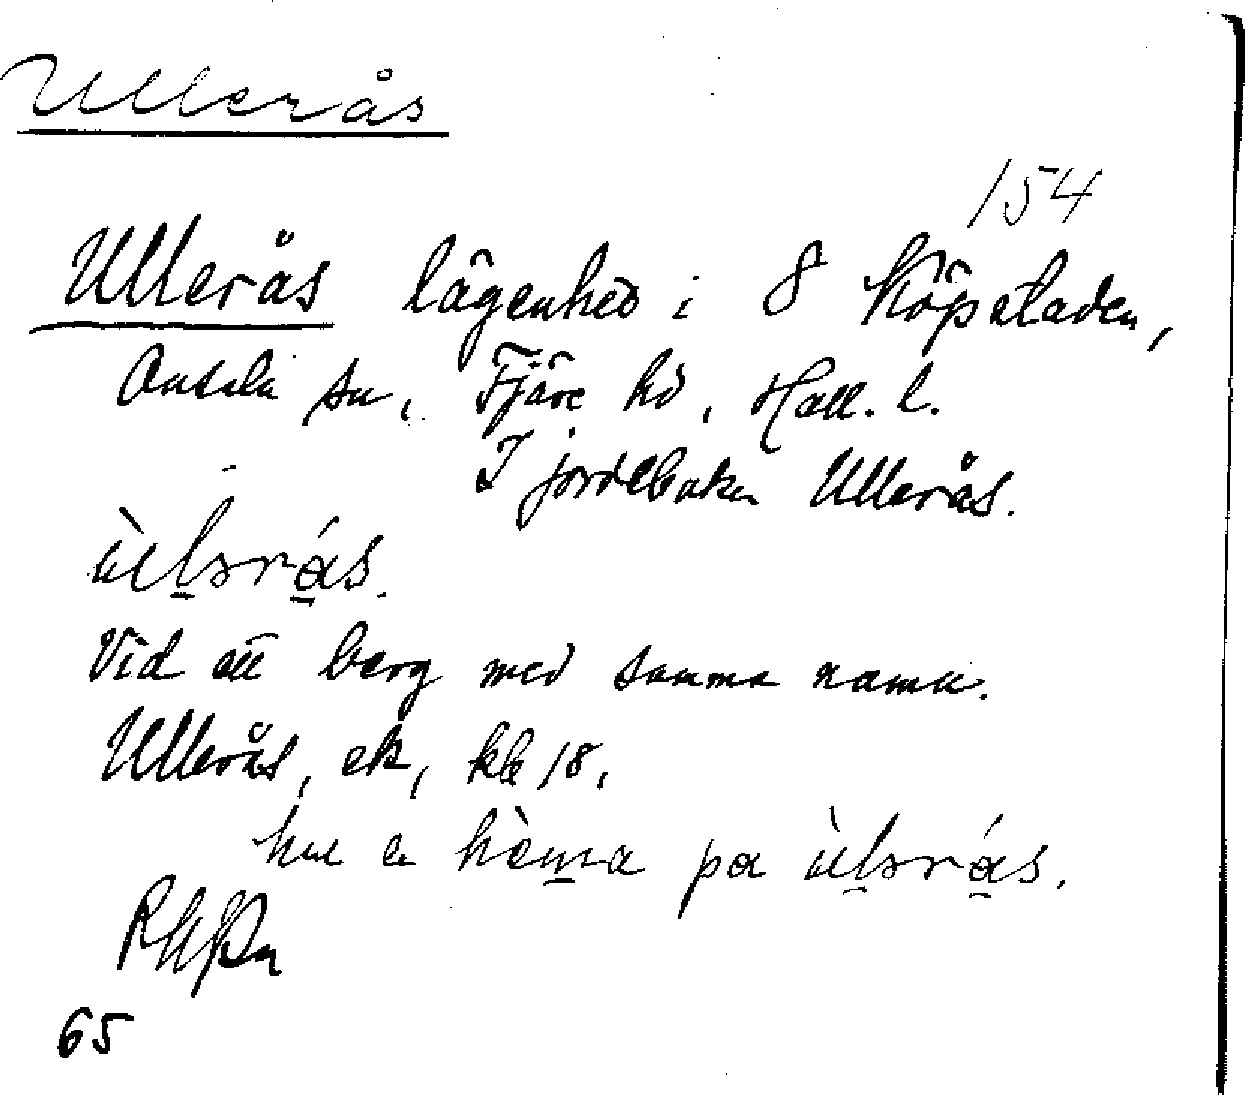 Ullerås
154
Ullerås lägenhet i 8 Köpstaden,
Onsala sn, Fjäre hd, Hall. l.
I jordeboken Ullerås.
ùl̲ərá̲s.
Vid ett berg med samma namn.
Ullerås, ek, kbl 18,
hu è hèm̲a pa ùl̲ərá̲s.
65